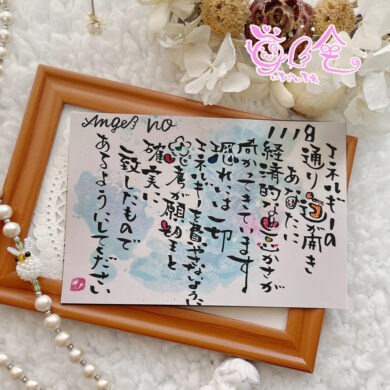 Angel NO
1118
エネルギーの
通り道が開き
あなたに
経済的な豊かさが
向かってきています
恐れには一切
エネルギーを費やさないように
思考が願望と
確実に
一致したもので
あるようにしてください